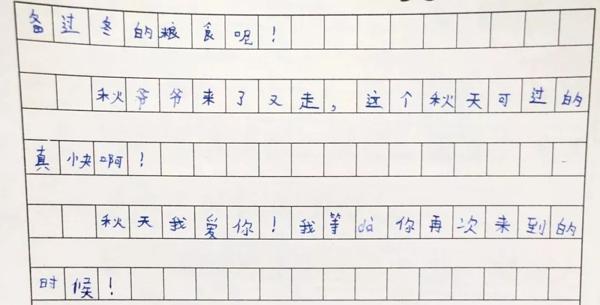 备过冬的粮食呢！
秋爷爷来了又走，这个秋天可过的
真快啊！
秋天我爱你！我等dài你再次来到的
时候！